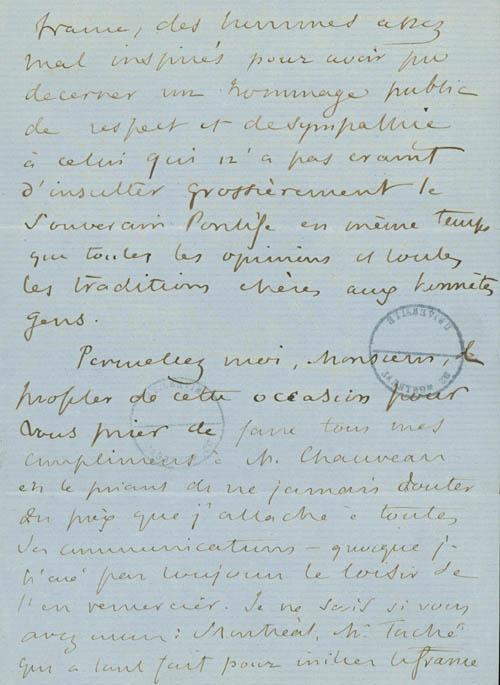 france, des hommes assez
mal inspirés pour avoir pu
décerner un hommage public
de respect et de sympathie
à celui qui n'a pas craint
d'insulter grossièrement le
Souverain Pontife en même temps
que toutes les opinions et toutes
les traditions chères aux honnêtes
gens.
Permettez moi, Monsieur, de
profiter de cette occasion pour
vous prier de faire tous mes
compliments à M. Chauveau
en le priant de ne jamais douter
du prix que j'attache à toutes
ses communications – quoique je
n'aie pas toujours le loisir de
l'en remercier. Je ne sais si vous
avez Montréal, Mr Taché
qui a tant fait pour initier la france